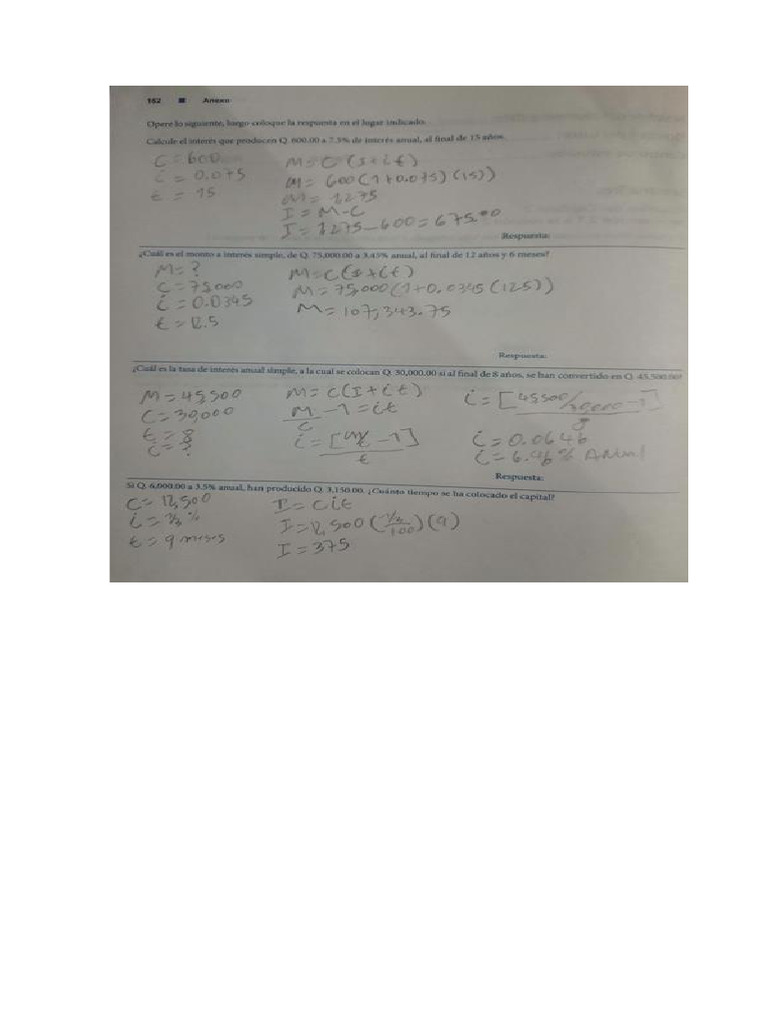 152 ■ Anexo
Opere lo siguiente, luego coloque la respuesta en el lugar indicado.
Calcule el interés que producen Q. 600.00 a 7.5% de interés anual, al final de 15 años.
C = 600 M = C (1 + it)
i = 0.075 M = 600 (1 + 0.075) (15))
t = 15 M = 1275
I = M - C
I = 1275 - 600 = 675.00
Respuesta:
¿Cuál es el monto a interés simple, de Q. 75,000.00 a 3.45% anual, al final de 12 años y 6 meses?
M = ? M = C (1 + it)
C = 75,000 M = 75,000 (1 + 0.0345 (12.5))
i = 0.0345 M = 107,343.75
t = 12.5
Respuesta:
¿Cuál es la tasa de interés anual simple, a la cual se colocan Q. 30,000.00 si al final de 8 años, se han convertido en Q. 45,500.00?
M = 45,500 M = C (I + it) i = [45500/30000 - 1]
C = 30,000 M/C - 1 = it 8
t = 8 i = [M/C - 1] i = 0.0646
i = ? t i = 6.46% Anual
Respuesta:
Si Q. 6,000.00 a 3.5% anual, han producido Q. 3,150.00. ¿Cuánto tiempo se ha colocado el capital?
C = 12,500 I = Cit
i = 1/3 % I = 12,500 (1/3/100) (9)
t = 9 meses I = 375